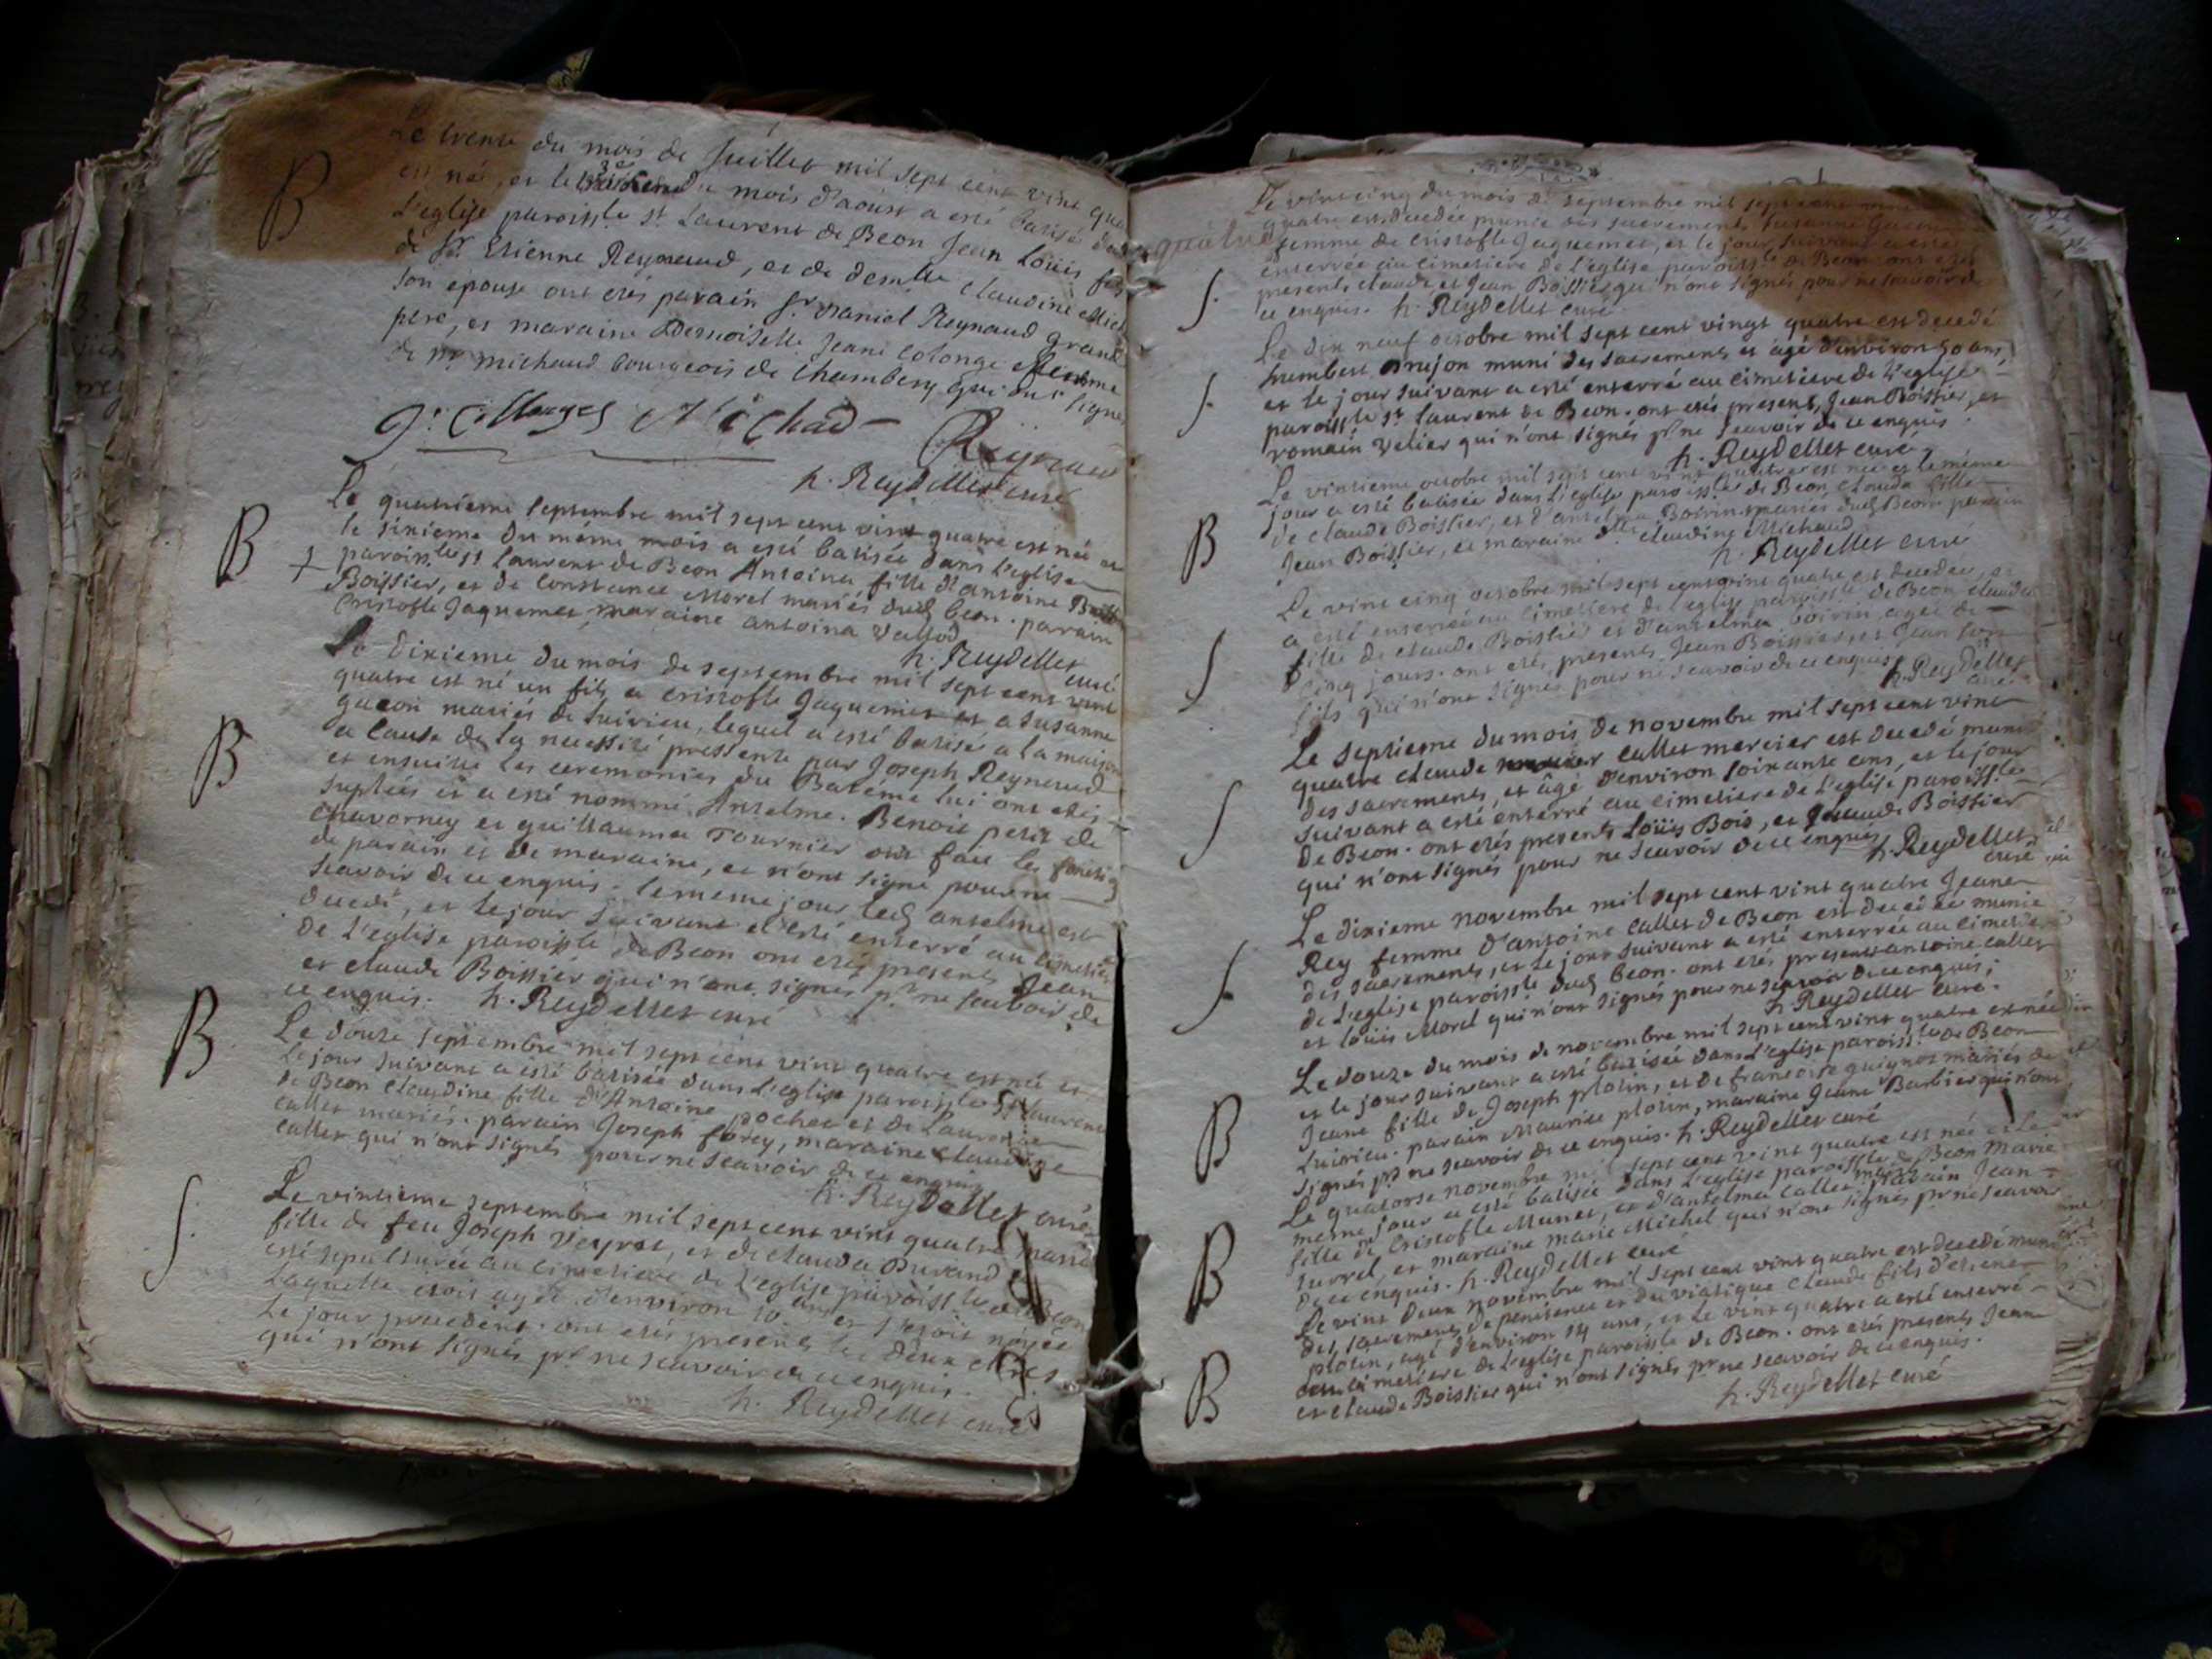 B
Le trente du mois de Juillet mil sept cent vint qua
est né, et le du mois d'aoust a esté batisé dans
L'eglise paroissle St. Laurent de Beon Jean Loüis fils
de Sr. Etienne Reynaud, et de demlle Claudine Mich
son epouse ont etés parain Sr. Daniel Reynaud grand
pere, et maraine Demoiselle Jeane Colonge femme
de Mr. Michaud bourgeois de Chambery qui ont signé
Michad
Reynaud
h. Reydellet curé
B
Le quatrieme septembre mil sept cent vint quatre est née et
le sixieme du même mois a esté batisée dans l'eglise
paroissle St Laurent de Beon Antoina fille d'antoine
Boissier, et de Constance Morel mariés dud beon. parain
Cristofle Jaquemet, maraine antoina Vallod
h. Reydellet curé
B
Le dixieme du mois de septembre mil sept cent vint
quatre est né un fils a cristofle Jaquemet et a Susanne
mariés de Luirieu, lequel a esté batisé a la maison
a cause de la necessité pressente par Joseph Reynaud
et ensuitte les ceremonies du Bateme lui ont etés
suplées et a esté nommé Anselme. Benoit petit de
Chavorney et guillauma Tournier ont fait les
de parain et de maraine, et n'ont signé pour ne
scavoir de ce enquis. le meme jour led anselme est
decedé, et le jour suivant a esté enterré au cimetiere
de l'eglise paroissle de Beon ont etés presents Jean
et claude Boissier qui n'ont signés pr ne scavoir de
ce enquis. h. Reydellet curé
B
Le douze septembre mil sept cent vint quatre est née et
le jour suivant a esté batisée dans l'eglise paroissle St Laurent
de Beon Claudine fille d'Antoine pochet et de Laurence
callet mariés. parain Joseph forey, maraine claudine
callet qui n'ont signés pour ne scavoir de ce enquis
h. Reydellet curé
S.
Le vintieme septembre mil sept cent vint quatre marie
fille de feu Joseph Veyret, et de clauda Durand a
esté sepulturée au cimetiere de l'eglise paroissle de Beon
laquelle etois agée d'environ 10 ans et s'etoit noyée
le jour precedent. ont etés presents les deux
qui n'ont signés pr ne scavoir de ce enquis.
h. Reydellet curé
S.
Le vintcinq du mois de septembre mil sept cent vint
quatre est decedée munie des sacrements Susanne
femme de cristofle Jaquemet, et le jour suivant a esté
enterrée au cimetiere de l'eglise paroissle de Beon ont etés
presents claude et Jean Boissier qui n'ont signés pour ne scavoir de
ce enquis. h. Reydellet curé
S.
Le dix neuf octobre mil sept cent vingt quatre est decedé
humbert Brujon muni des sacrements et agé d'environ 50 ans,
et le jour suivant a esté enterré au cimetiere de l'eglise
paroissle St laurent de Beon. ont etés presents, Jean Boissier, et
romain Velier qui n'ont signés pr ne scavoir de ce enquis
h. Reydellet curé
B
Le vintieme octobre mil sept cent vint quatre est née et le même
jour a esté batisée dans l'eglise paroissle de Beon Clauda fille
de claude Boissier, et d'anselma Boirin mariés dud Beon parain
Jean Boissier, et maraine dlle claudine Michaud
h. Reydellet curé
S
Le vint cinq octobre mil sept cent vint quatre est decedée, et
a esté enterrée au cimetiere de l'eglise paroissle de Beon clauda
fille de claude Boissier et d'anselma boirin agée de
cinq jours. ont etés presents Jean Boissier, et Jean son
fils qui n'ont signés pour ne scavoir de ce enquis
h. Reydellet curé
S
Le septieme du mois de novembre mil sept cent vint
quatre claude callet mercier est decedé muni
des sacrements, et âgé d'environ soixante ans, et le jour
suivant a esté enterré au cimetiere de l'eglise paroissle
de Beon. ont etés presents Loüis Bois, et claude Boissier
qui n'ont signés pour ne scavoir de ce enquis
h. Reydellet curé
S.
Le dixieme novembre mil sept cent vint quatre Jeane
Rey femme d'antoine callet de Beon est decedée munie
des sacrements, et le jour suivant a esté enterrée au cimetiere
de l'eglise paroissle dud beon. ont etés presents antoine callet
et loüis Morel qui n'ont signés pour ne scavoir de ce enquis,
h. Reydellet curé.
B
Le douze du mois de novembre mil sept cent vint quatre est née
et le jour suivant a esté batisée dans l'eglise paroissle de Beon
Jeane fille de Joseph plotin, et de francoise guignot mariés de
Luirieu. parain Maurice plotin, maraine Jeane Barbier qui n'ont
signés pr ne scavoir de ce enquis. h. Reydellet curé
B
Le quatorse novembre mil sept cent vint quatre est née et le
mesme jour a esté batisée dans l'eglise paroissle de Beon Marie
fille de Cristofle Munet, et d'anselma callet mariés parain Jean
Surrel, et maraine marie Michel qui n'ont signés pr ne scavoir
de ce enquis. h. Reydellet curé
B
Le vint deux novembre mil sept cent vint quatre est decedé muni
des sacrements de penitence et du viatique Claude fils d'etiene
plotin, agé d'environ 14 ans, et le vint quatre a esté enterré
cimetiere de l'eglise paroissle de Beon. ont etés presents Jean
et claude Boissier qui n'ont signés pr ne scavoir de ce enquis.
h. Reydellet curé